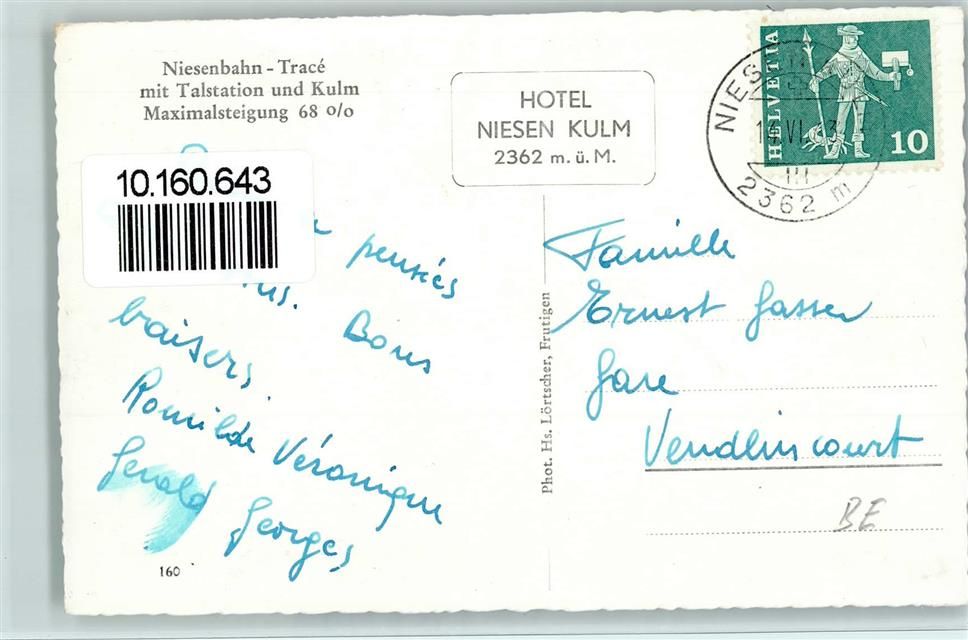 Niesenbahn - Tracé
mit Talstation und Kulm
Maximalsteigung 68 o/o
HOTEL
NIESEN KULM
2362 m. ü. M.
HELVETIA
10
NIES
VI
2362 m
10.160.643
pensées
Bons
baisers
Romilde Véronique
Gérald Georges
Famille
Ernest Gasser
Gare
Vendlincourt
BE
Phot. Hs. Lörtscher, Frutigen
160